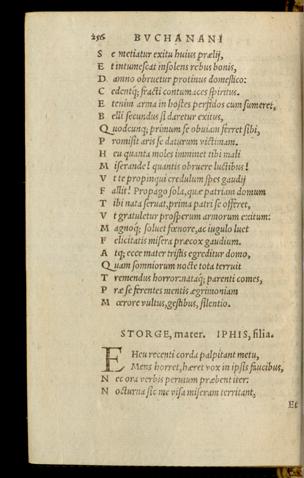 256 BVCHANANI
S e metiatur exitu huius prælij,
E t intumescat insolens rebus bonis,
D amno obruetur protinus domestico:
C edentq; fracti contumaces spiritus.
E tenim arma in hostes perfidos cum sumeret,
B elli secundus si daretur exitus,
Q uodcunq; primum se obuiam ferret sibi,
P romisit aris se daturum victimam.
H eu quanta moles imminet tibi mali
M iserande! quantis obruere luctibus!
V t te propinqui credulum spes gaudij
F allit! Propago sola, quæ patriam domum
T ibi nata seruat, prima patri se offeret,
V t gratuletur prosperum armorum exitum:
M agnoq; soluet fœnore, ac iugulo luet
F elicitatis misera præcox gaudium.
A tq; ecce mater tristis egreditur domo,
Q uam somniorum nocte tota terruit
T remendus horror: nataq; parenti comes,
P ræ se ferentes mentis ægrimoniam
M œrore vultus, gestibus, silentio.
STORGE, mater. IPHIS, filia.
E Heu recenti corda palpitant metu,
Mens horret, hæret vox in ipsis faucibus,
N ec ora verbis peruium præbent iter:
N octurna sic me visa miseram territant,
Et